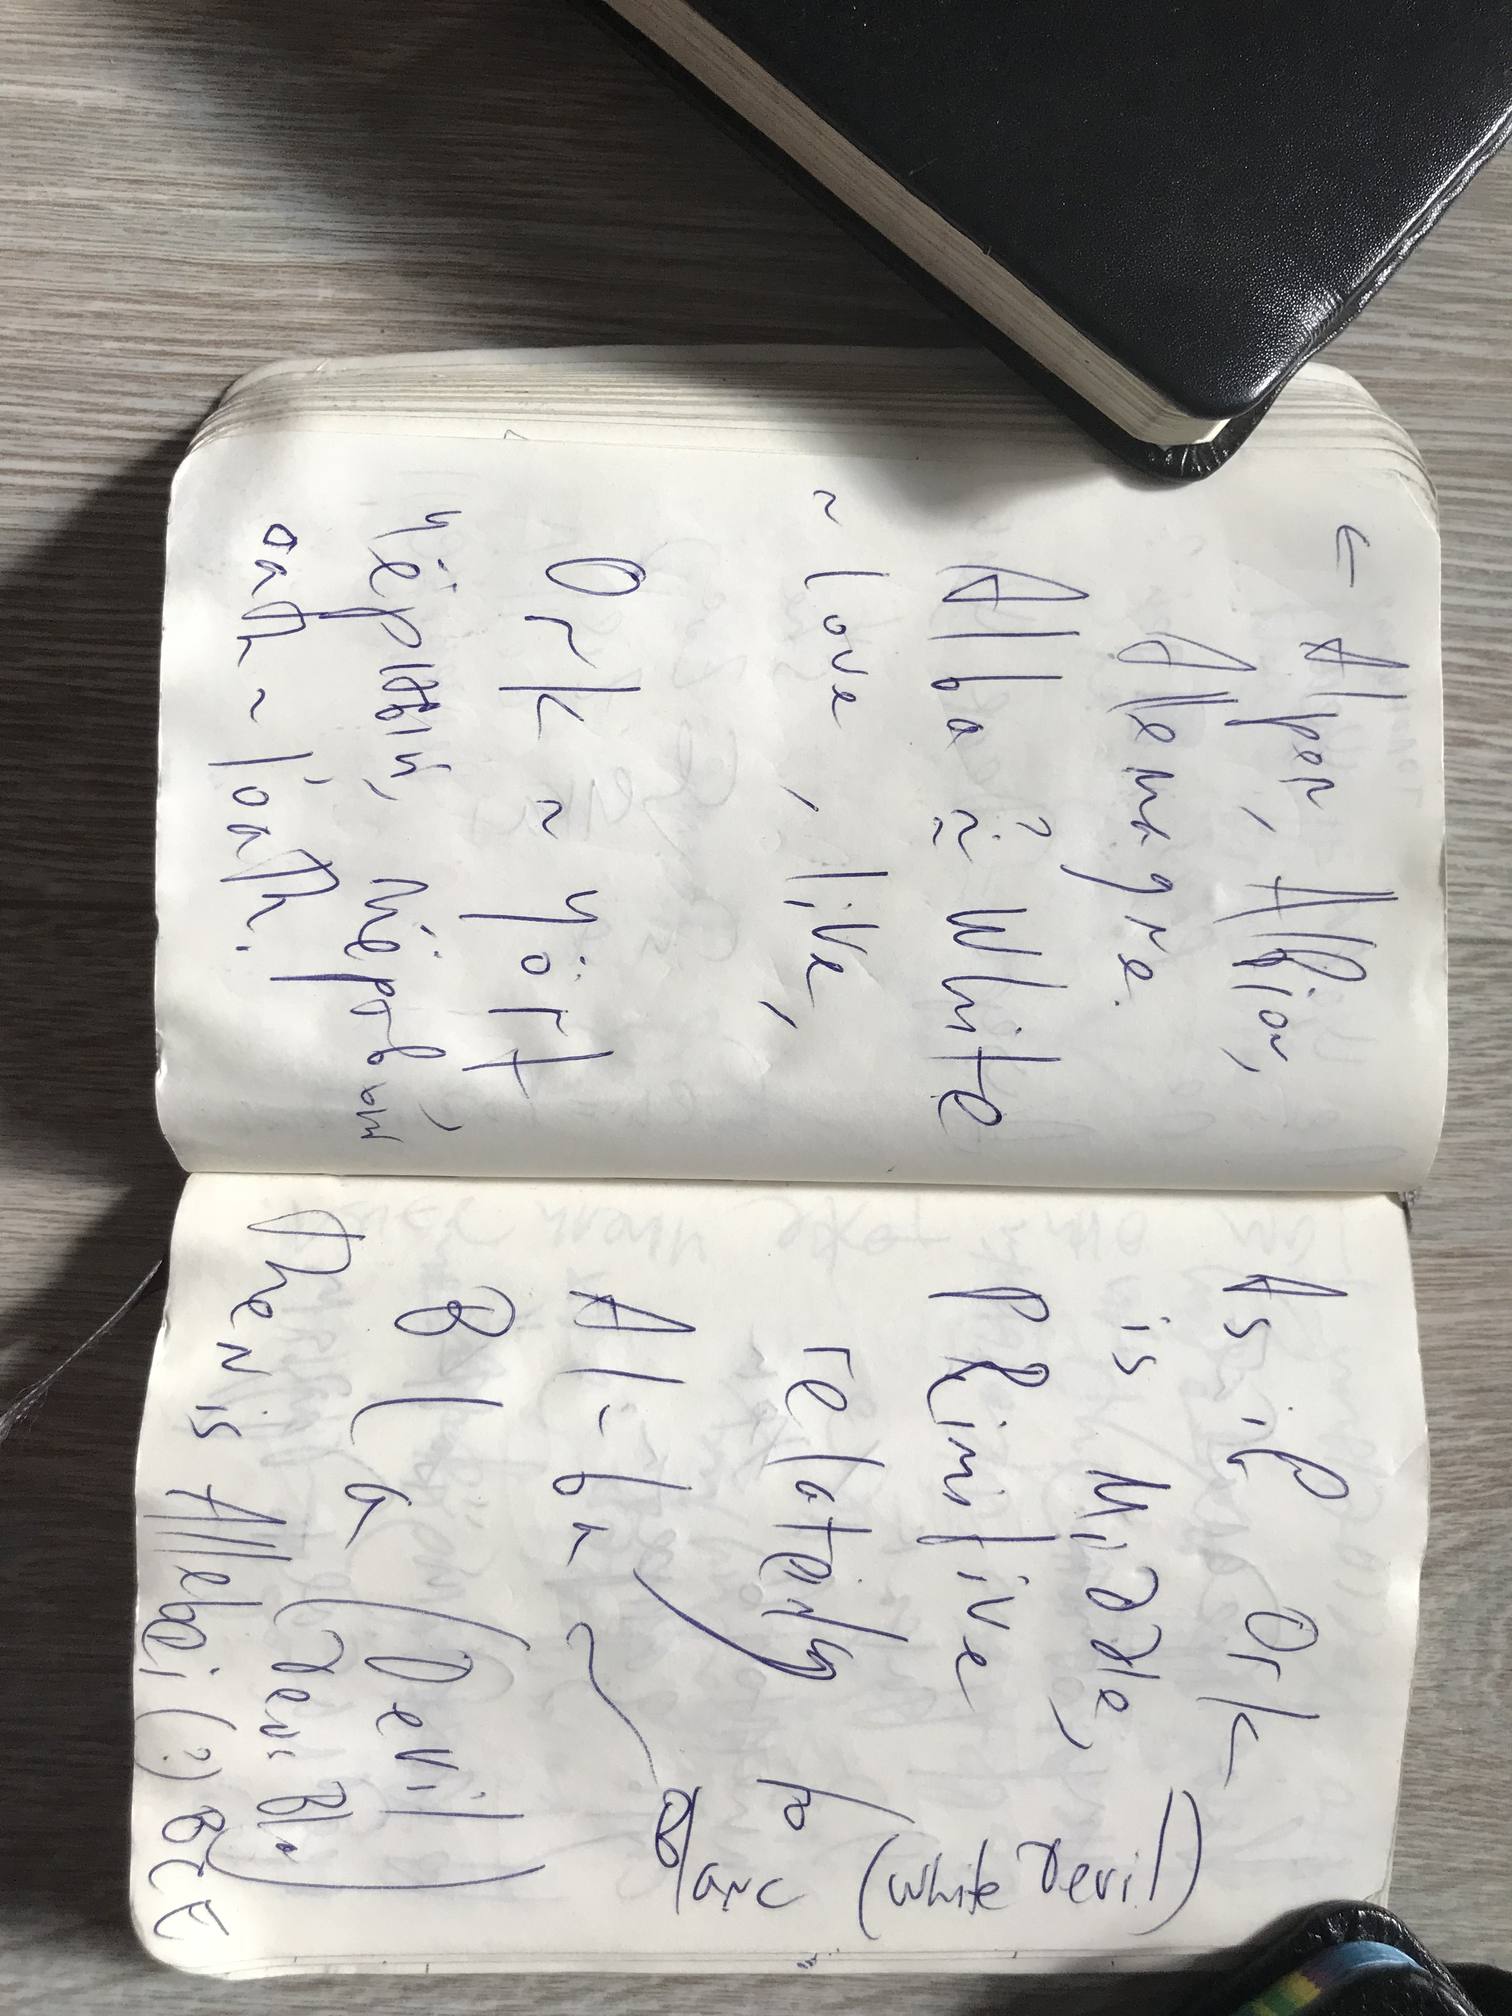 ← Alpen, Albion,
Allemagre.
Alba ≈ White
~ love, live,
Ork ~ york
чёрный,
oath ~ l'oath.
As if Ork
is Middle,
PRimitive
relatedly
to
Al-ba
Blanc (white devil)
Bla (Devil)
(devi Bla)
then is Allebei (?) BLE